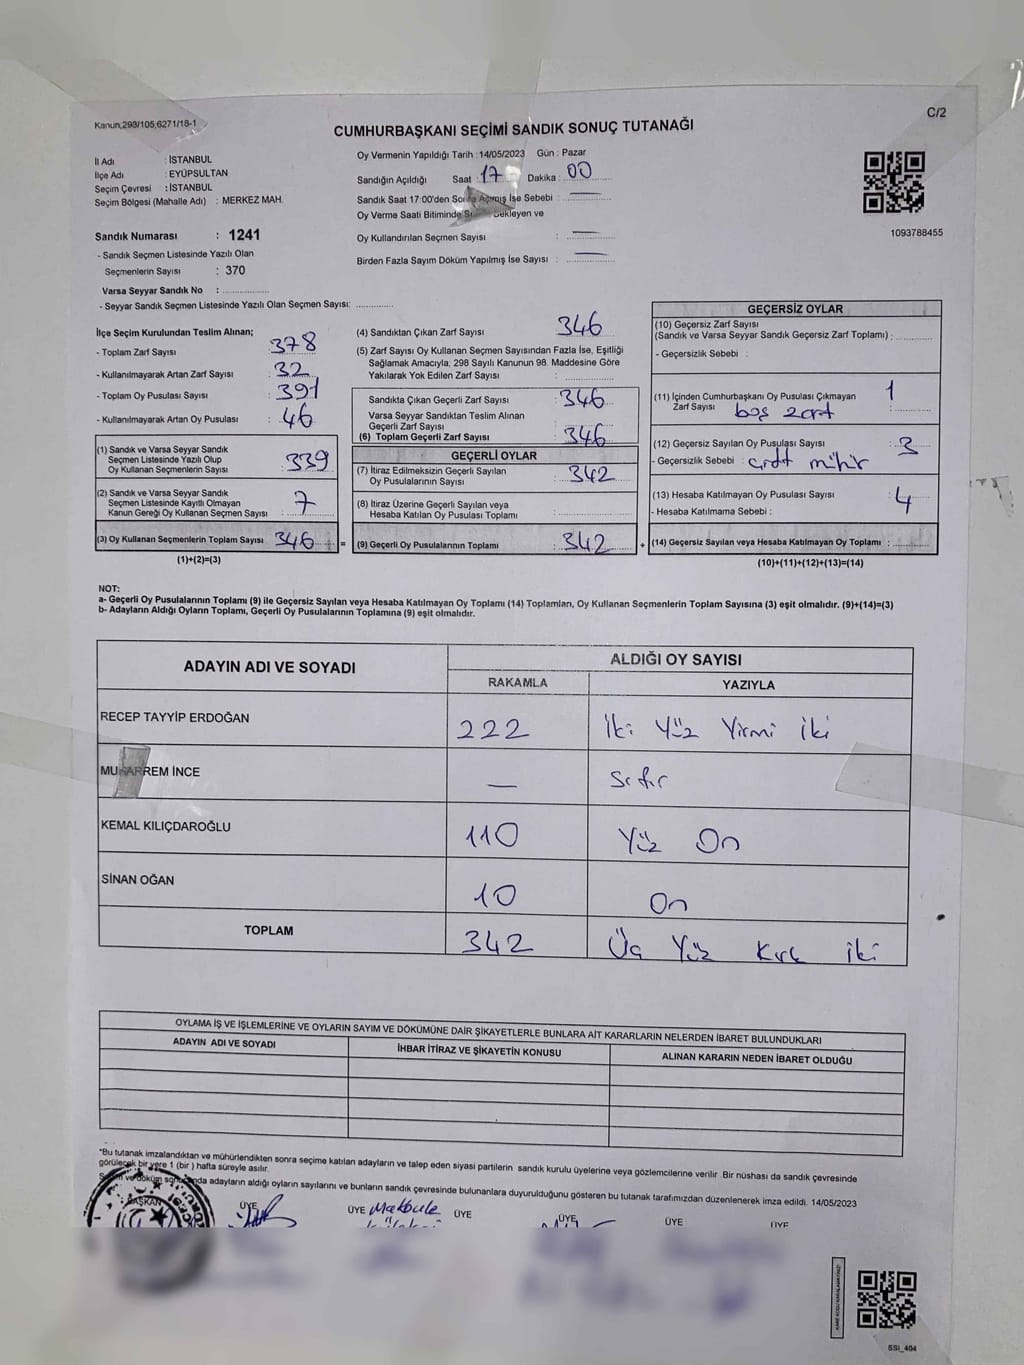 Kanun:298/105,6271/18-1
C/2
CUMHURBAŞKANI SEÇİMİ SANDIK SONUÇ TUTANAĞI
İl Adı : İSTANBUL
İlçe Adı : EYÜPSULTAN
Seçim Çevresi : İSTANBUL
Seçim Bölgesi (Mahalle Adı) : MERKEZ MAH.
Oy Vermenin Yapıldığı Tarih :14/05/2023 Gün : Pazar
Sandığın Açıldığı Saat : 17 Dakika : 00
Sandık Saat 17:00'den Sonra Açılmış İse Sebebi :
Oy Verme Saati Bitiminde Bekleyen ve
Oy Kullandırılan Seçmen Sayısı :
Birden Fazla Sayım Döküm Yapılmış İse Sayısı :
1093788455
Sandık Numarası : 1241
- Sandık Seçmen Listesinde Yazılı Olan
Seçmenlerin Sayısı : 370
Varsa Seyyar Sandık No :
- Seyyar Sandık Seçmen Listesinde Yazılı Olan Seçmen Sayısı:
İlçe Seçim Kurulundan Teslim Alınan;
- Toplam Zarf Sayısı : 378
- Kullanılmayarak Artan Zarf Sayısı : 32
- Toplam Oy Pusulası Sayısı : 391
- Kullanılmayarak Artan Oy Pusulası : 46
(1) Sandık ve Varsa Seyyar Sandık
Seçmen Listesinde Yazılı Olup
Oy Kullanan Seçmenlerin Sayısı : 339
(2) Sandık ve Varsa Seyyar Sandık
Seçmen Listesinde Kayıtlı Olmayan
Kanun Gereği Oy Kullanan Seçmen Sayısı : 7
(3) Oy Kullanan Seçmenlerin Toplam Sayısı : 346
(1)+(2)=(3)
(4) Sandıktan Çıkan Zarf Sayısı : 346
(5) Zarf Sayısı Oy Kullanan Seçmen Sayısından Fazla İse, Eşitliği
Sağlamak Amacıyla, 298 Sayılı Kanunun 98. Maddesine Göre
Yakılarak Yok Edilen Zarf Sayısı :
Sandıkta Çıkan Geçerli Zarf Sayısı : 346
Varsa Seyyar Sandıktan Teslim Alınan
Geçerli Zarf Sayısı :
(6) Toplam Geçerli Zarf Sayısı : 346
GEÇERLİ OYLAR
(7) İtiraz Edilmeksizin Geçerli Sayılan
Oy Pusulalarının Sayısı : 342
(8) İtiraz Üzerine Geçerli Sayılan veya
Hesaba Katılan Oy Pusulası Toplamı :
= (9) Geçerli Oy Pusulalarının Toplamı : 342
GEÇERSİZ OYLAR
(10) Geçersiz Zarf Sayısı
(Sandık ve Varsa Seyyar Sandık Geçersiz Zarf Toplamı) :
- Geçersizlik Sebebi :
(11) İçinden Cumhurbaşkanı Oy Pusulası Çıkmayan
Zarf Sayısı boş zarf : 1
(12) Geçersiz Sayılan Oy Pusulası Sayısı : 3
- Geçersizlik Sebebi : çift mühür
(13) Hesaba Katılmayan Oy Pusulası Sayısı : 4
- Hesaba Katılmama Sebebi :
+ (14) Geçersiz Sayılan veya Hesaba Katılmayan Oy Toplamı :
(10)+(11)+(12)+(13)=(14)
NOT:
a- Geçerli Oy Pusulalarının Toplamı (9) ile Geçersiz Sayılan veya Hesaba Katılmayan Oy Toplamı (14) Toplamları, Oy Kullanan Seçmenlerin Toplam Sayısına (3) eşit olmalıdır. (9)+(14)=(3)
b- Adayların Aldığı Oyların Toplamı, Geçerli Oy Pusulalarının Toplamına (9) eşit olmalıdır.
ADAYIN ADI VE SOYADI
ALDIĞI OY SAYISI
RAKAMLA YAZIYLA
RECEP TAYYİP ERDOĞAN 222 İki Yüz Yirmi iki
MUHARREM İNCE — Sıfır
KEMAL KILIÇDAROĞLU 110 Yüz On
SİNAN OĞAN 10 On
TOPLAM 342 Üç Yüz Kırk iki
OYLAMA İŞ VE İŞLEMLERİNE VE OYLARIN SAYIM VE DÖKÜMÜNE DAİR ŞİKAYETLERLE BUNLARA AİT KARARLARIN NELERDEN İBARET BULUNDUKLARI
ADAYIN ADI VE SOYADI İHBAR İTİRAZ VE ŞİKAYETİN KONUSU ALINAN KARARIN NEDEN İBARET OLDUĞU
*Bu tutanak imzalandıktan ve mühürlendikten sonra seçime katılan adayların ve talep eden siyasi partilerin sandık kurulu üyelerine veya gözlemcilerine verilir .Bir nüshası da sandık çevresinde
görülecek bir yere 1 (bir ) hafta süreyle asılır.
Sayım ve döküm sonucunda adayların aldığı oyların sayılarını ve bunların sandık çevresinde bulunanlara duyurulduğunu gösteren bu tutanak tarafımızdan düzenlenerek imza edildi. 14/05/2023
BAŞKAN ÜYE ÜYE Makbule ÜYE ÜYE ÜYE ÜYE
SSI_404